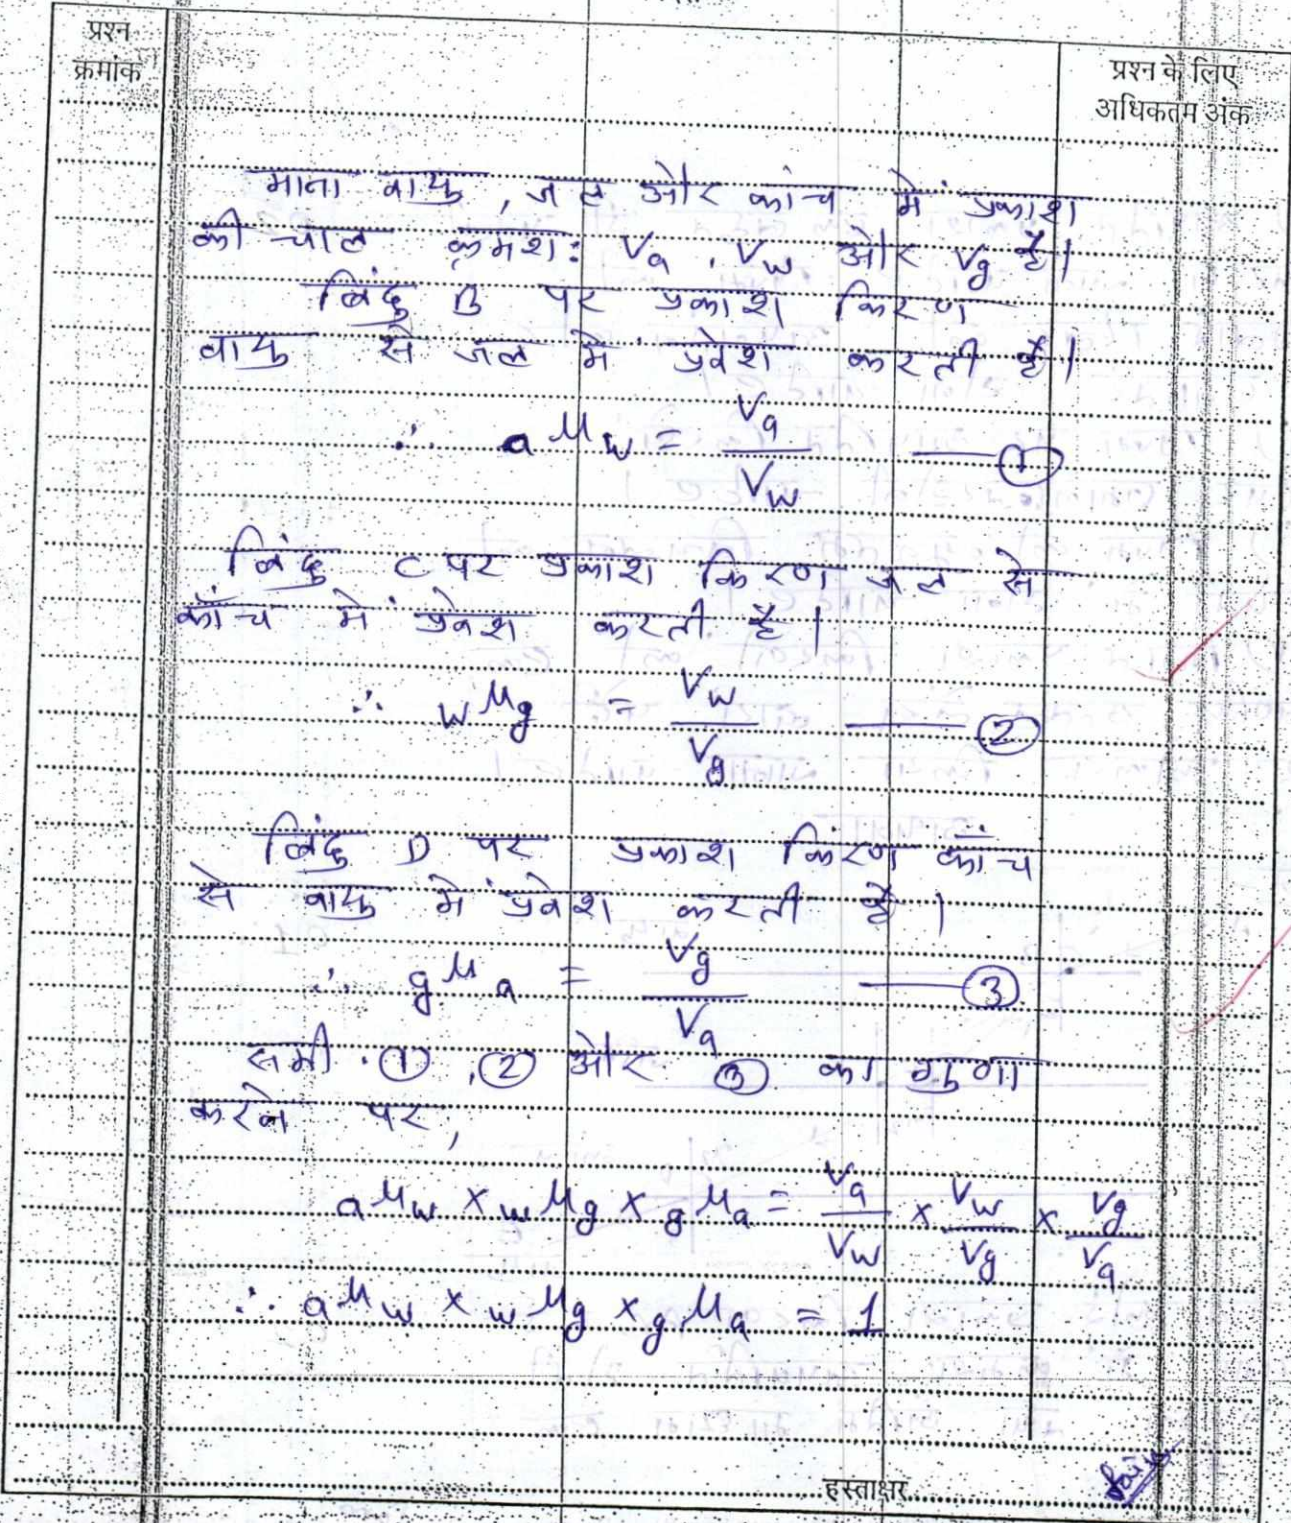 प्रश्न
क्रमांक
प्रश्न के लिए
अधिकतम अंक
माना वायु, जल और कांच में प्रकाश
की चाल क्रमशः Va, Vw और Vg है।
बिंदु B पर प्रकाश किरण
वायु से जल मे प्रवेश करती है।
∴ aμw = Va/Vw —— ①
बिंदु C पर प्रकाश किरण जल से
काँच में प्रवेश करती है।
∴ wμg = Vw/Vg —— ②
बिंदु D पर प्रकाश किरण काँच
से वायु में प्रवेश करती है।
∴ gμa = Vg/Va —— ③
समी. ①, ② और ③ का गुणा
करने पर,
aμw × wμg × gμa = Va/Vw × Vw/Vg × Vg/Va
∴ aμw × wμg × gμa = 1
हस्ताक्षर